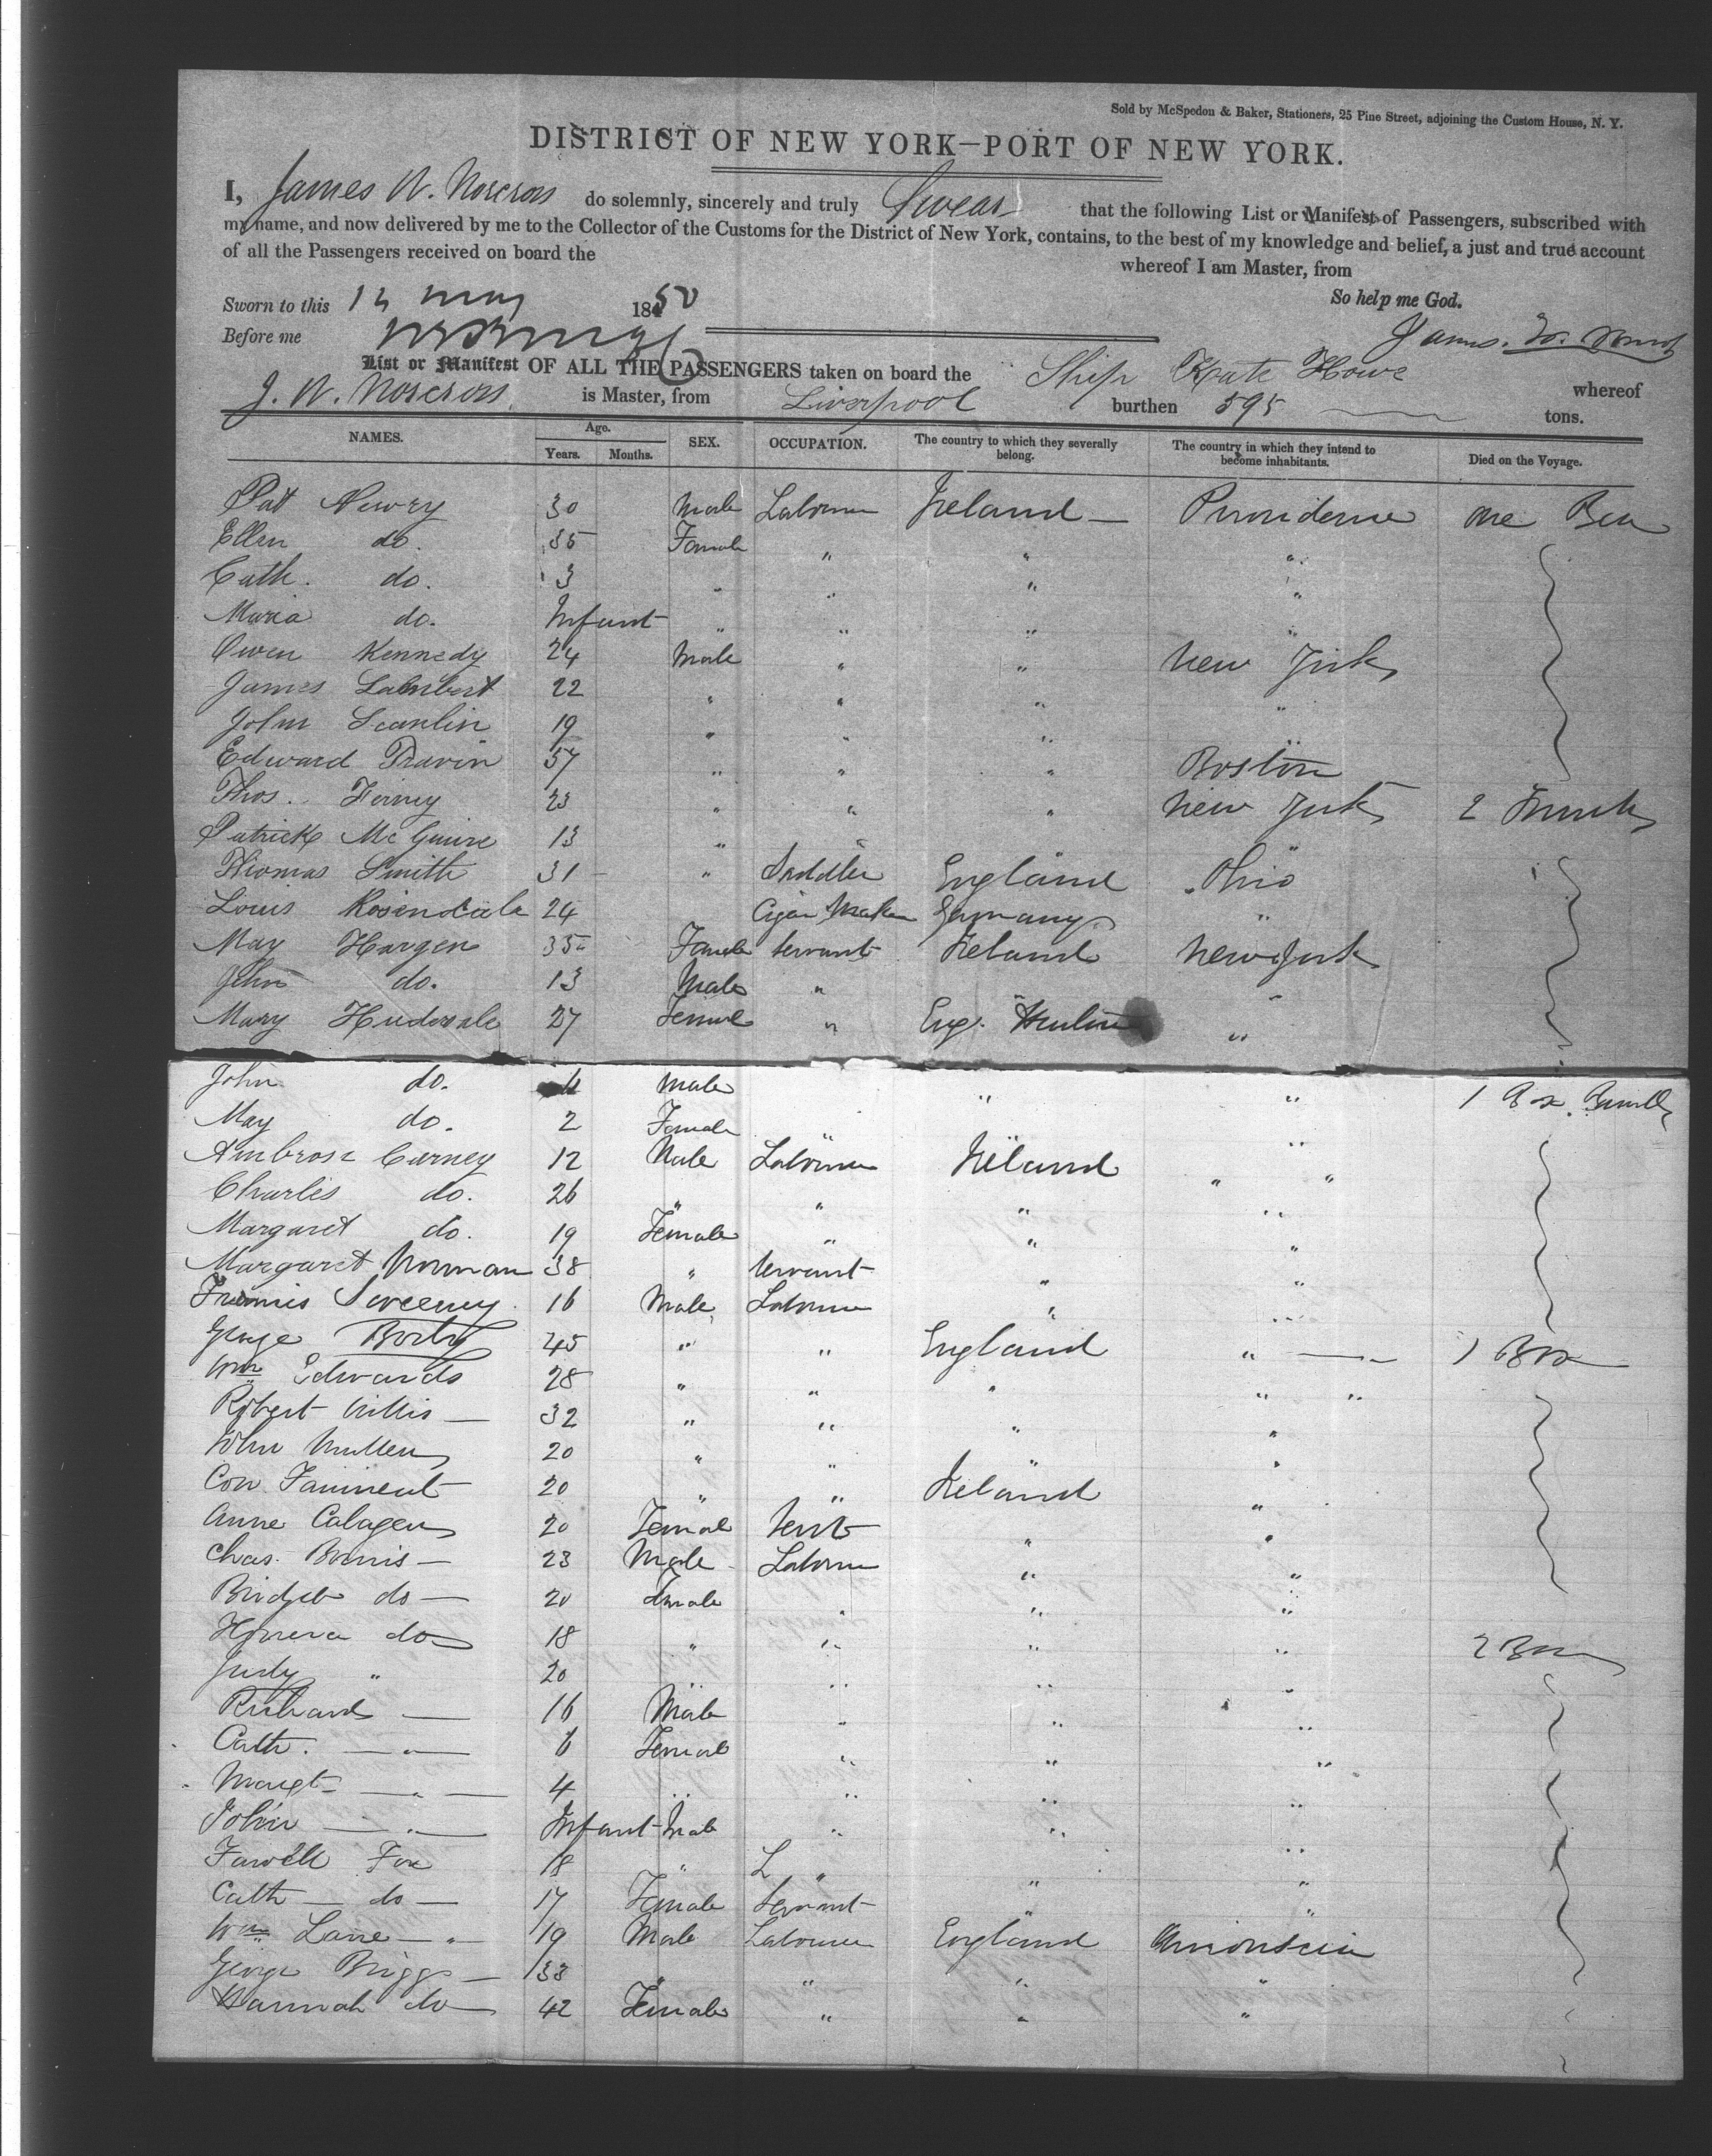 Sold by McSpedon & Baker, Stationers, 25 Pine Street, adjoining the Custom House, N. Y.
DISTRICT OF NEW YORK—PORT OF NEW YORK.
I, James W. Norcross do solemnly, sincerely and truly Swear that the following List or Manifest of Passengers, subscribed with
my name, and now delivered by me to the Collector of the Customs for the District of New York, contains, to the best of my knowledge and belief, a just and true account
of all the Passengers received on board the whereof I am Master, from
So help me God.
Sworn to this 1 may 1850
Before me
James. W.
List or Manifest OF ALL THE PASSENGERS taken on board the Ship Kate Howe whereof
J. W. Norcross is Master, from Liverpool burthen 595 tons.
NAMES. Age. Years. Months. SEX. OCCUPATION. The country to which they severally belong. The country in which they intend to become inhabitants. Died on the Voyage.
Pat Newry 30 Male Labourer Ireland — Providence one Box
Ellen do. 35 Female " " "
Cath. do. 3 " " " "
Maria do. Infant " " " "
Owen Kennedy 24 Male " " New York
James Lambert 22 " " " "
John Scanlin 19 " " " "
Edward Travin 57 " " " Boston
Thos. Tierney 23 " " " New York 2 Trunks
Patrick McGuire 13 " " " "
Thomas Smith 31 " Saddler England Ohio
Louis Rosendale 24 Cigar Maker Germany "
May Hargen 35 Female Servant Ireland New York
John do. 13 Male " " "
Mary 27 Female " Eng. "
John do. 11 male " "
May do. 2 Female " "
Ambrose Carney 12 Male Labourer Ireland " "
Charles do. 26 " " " "
Margaret do. 19 Female " " "
Margaret Norman 38 " Servant " "
Francis Sweeney 16 Male Labourer " "
George 45 " " England " — 1 Box
Wm Edwards 28 " " " " "
Robert Willis — 32 " " " "
John Mullen 20 " " " "
Con 20 " " Ireland "
Anne Calagen 20 Female Servt " "
Chas. — 23 Male Labourer " "
Bridget do — 20 Female " " "
Honora do 18 " " " " 2 Box
Judy " 20 " " " "
Richard — 16 Male " " "
Cath. — " — 6 Female " " "
Margt — " — 4 " " " "
John — " — Infant Male " " "
Fox 18 " L " " "
Cath — do — 17 Female Servant " "
Wm Lane — " 19 Male Labourer England
George Briggs — 33 " " " "
Hannah do — 42 Female " " "